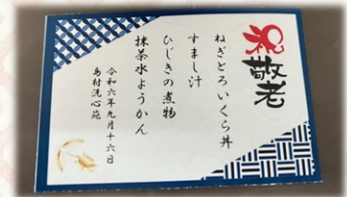 祝敬老
ねぎとろいくら丼
すまし汁
ひじきの煮物
抹茶水ようかん
令和六年九月十六日
島村洗心苑